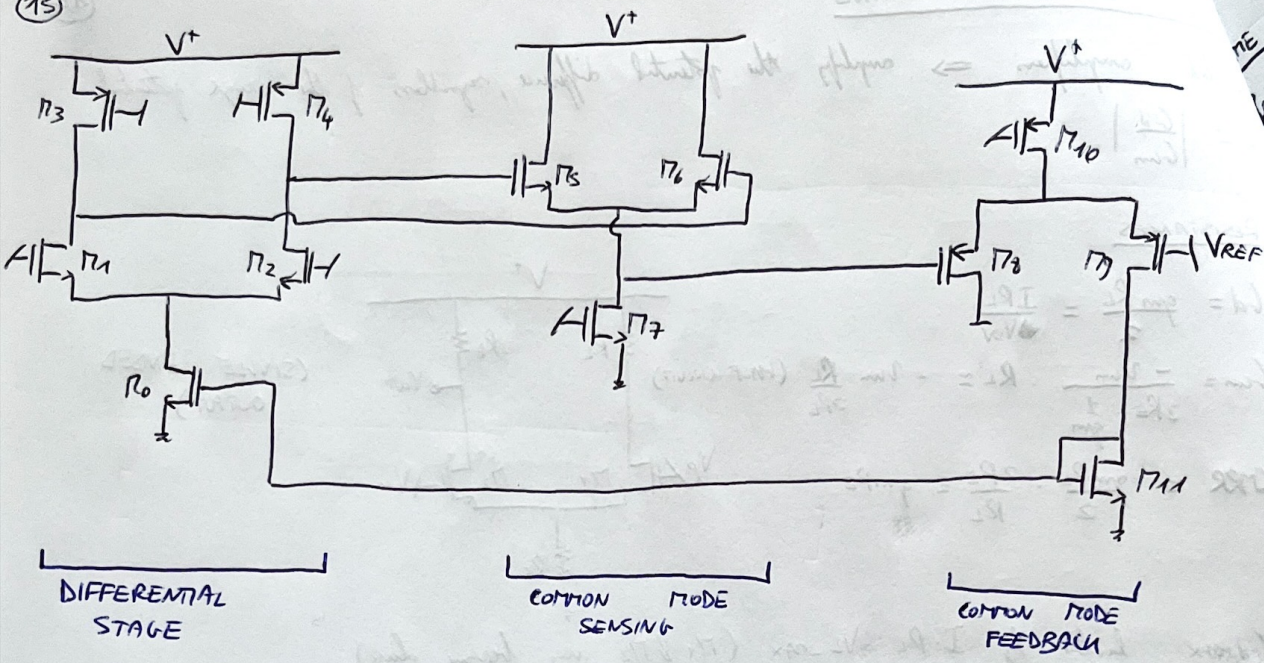 15
V+
V+
V+
M3
M4
M10
M5
M6
M1
M2
M8
M9
VREF
M7
M0
M11
DIFFERENTIAL
STAGE
COMMON MODE
SENSING
COMMON MODE
FEEDBACK